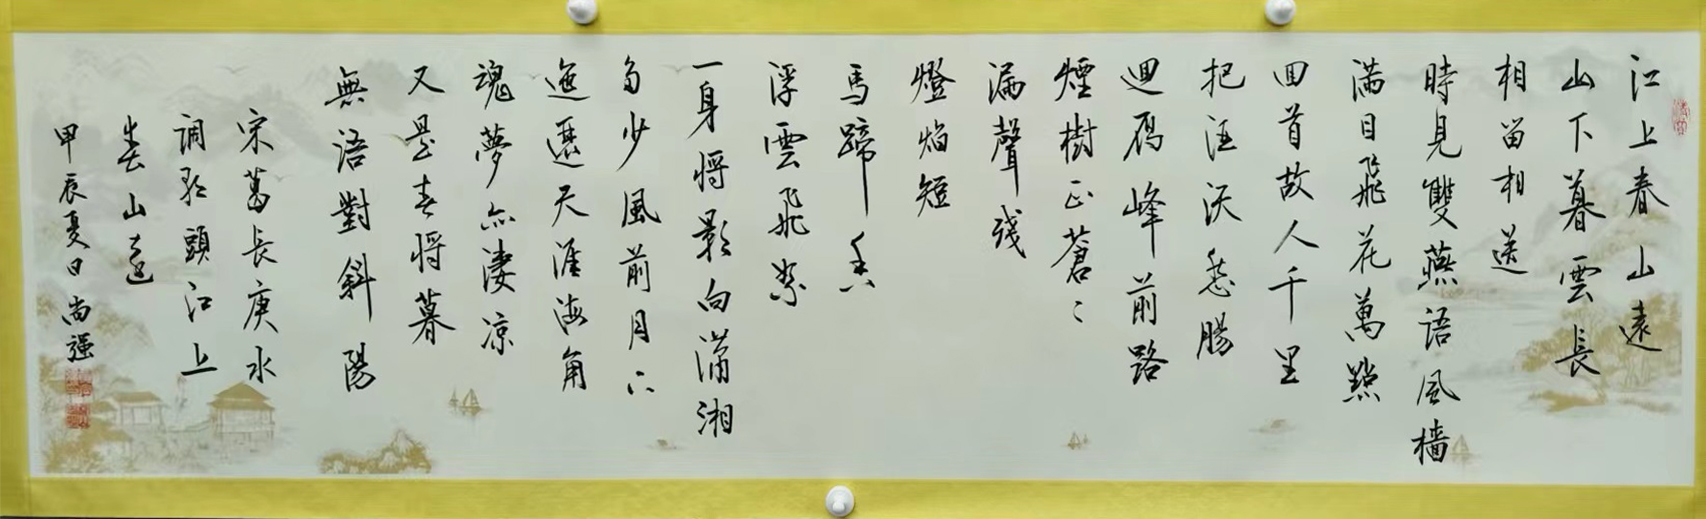 江上春山遠
山下暮雲長
相畄相送
時見雙燕語風檣
满目飛花萬點
回首故人千里
把酒沃愁腸
迴雁峰前路
煙樹正蒼々
漏聲残
燈焰短
馬蹄香
浮雲飛絮
一身将影向潇湘
多少風前月下
迤邐天涯海角
魂夢亦淒凉
又是春将暮
無語對斜陽
宋葛長庚水
調歌頭江上
春山遠
甲辰夏日尚强